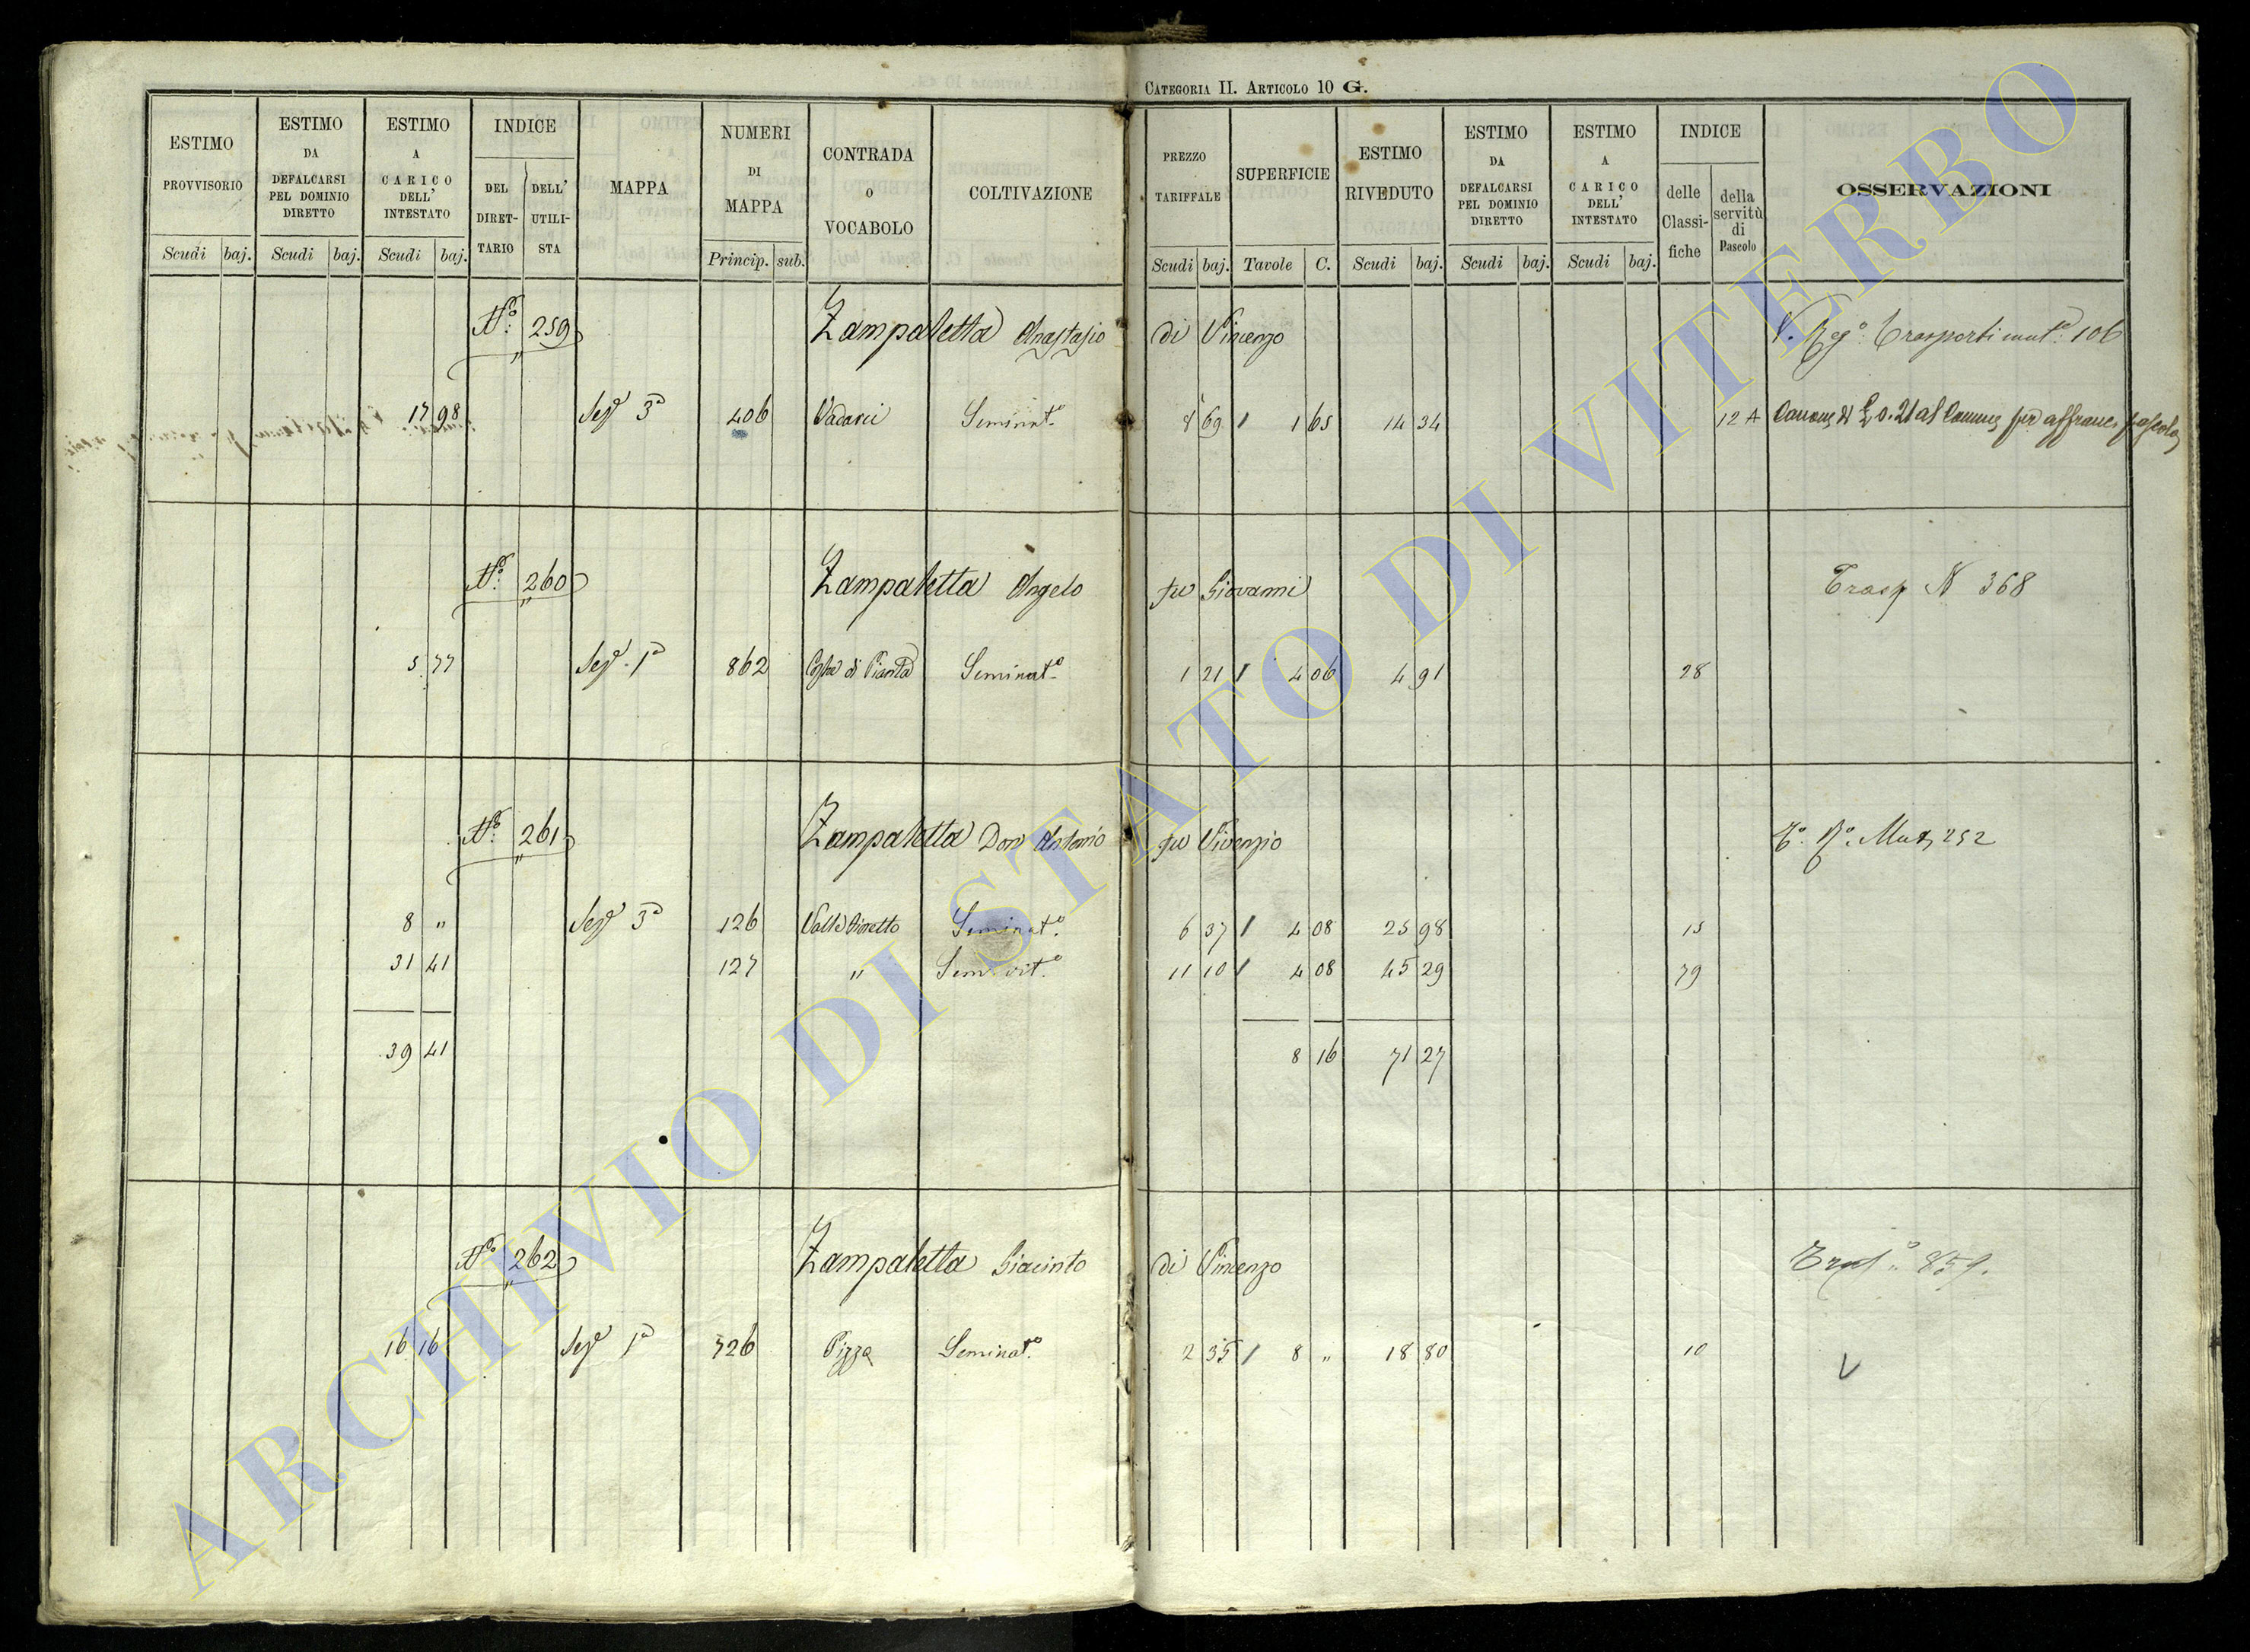 CATEGORIA II. ARTICOLO 10 G.
ESTIMO PROVVISORIO Scudi baj.
ESTIMO DA DEFALCARSI PEL DOMINIO DIRETTO Scudi baj.
ESTIMO A CARICO DELL' INTESTATO Scudi baj.
INDICE DEL DIRETTARIO DELL' UTILISTA
MAPPA
NUMERI DI MAPPA Princip. sub.
CONTRADA O VOCABOLO
COLTIVAZIONE
PREZZO TARIFFALE Scudi baj.
SUPERFICIE Tavole C.
ESTIMO RIVEDUTO Scudi baj.
ESTIMO DA DEFALCARSI PEL DOMINIO DIRETTO Scudi baj.
ESTIMO A CARICO DELL' INTESTATO Scudi baj.
INDICE delle Classifiche della servitù di Pascolo
OSSERVAZIONI
N.º 259 Zampaletta Anastasio di Vincenzo V. Reg.º Trasporti mut.e 106
17 98 Sez.e 3ª 406 Seminat.º 8 69 1 65 14 34 12 A Canone di 0.21 al Comune per affranc. pascolo
N.º 260 Zampaletta Angelo fu Giovanni Trasp N 368
5 77 Sez.e 1ª 862 Costa di Pianta Seminat.º 1 21 4 06 4 91 28
N.º 261 Zampaletta Don Antonio fu Vicenzio Mut. 252
8 " Sez.e 3ª 126 Valle Seminat.º 6 37 4 08 25 98 15
31 41 127 " Sem. vit.º 11 10 4 08 45 29 79
39 41 8 16 71 27
N.º 262 Zampaletta Giacinto di Vincenzo 859.
16 16 Sez.e 1ª 726 Pizza Seminat.º 2 35 8 " 18 80 10
V
ARCHIVIO DI STATO DI VITERBO